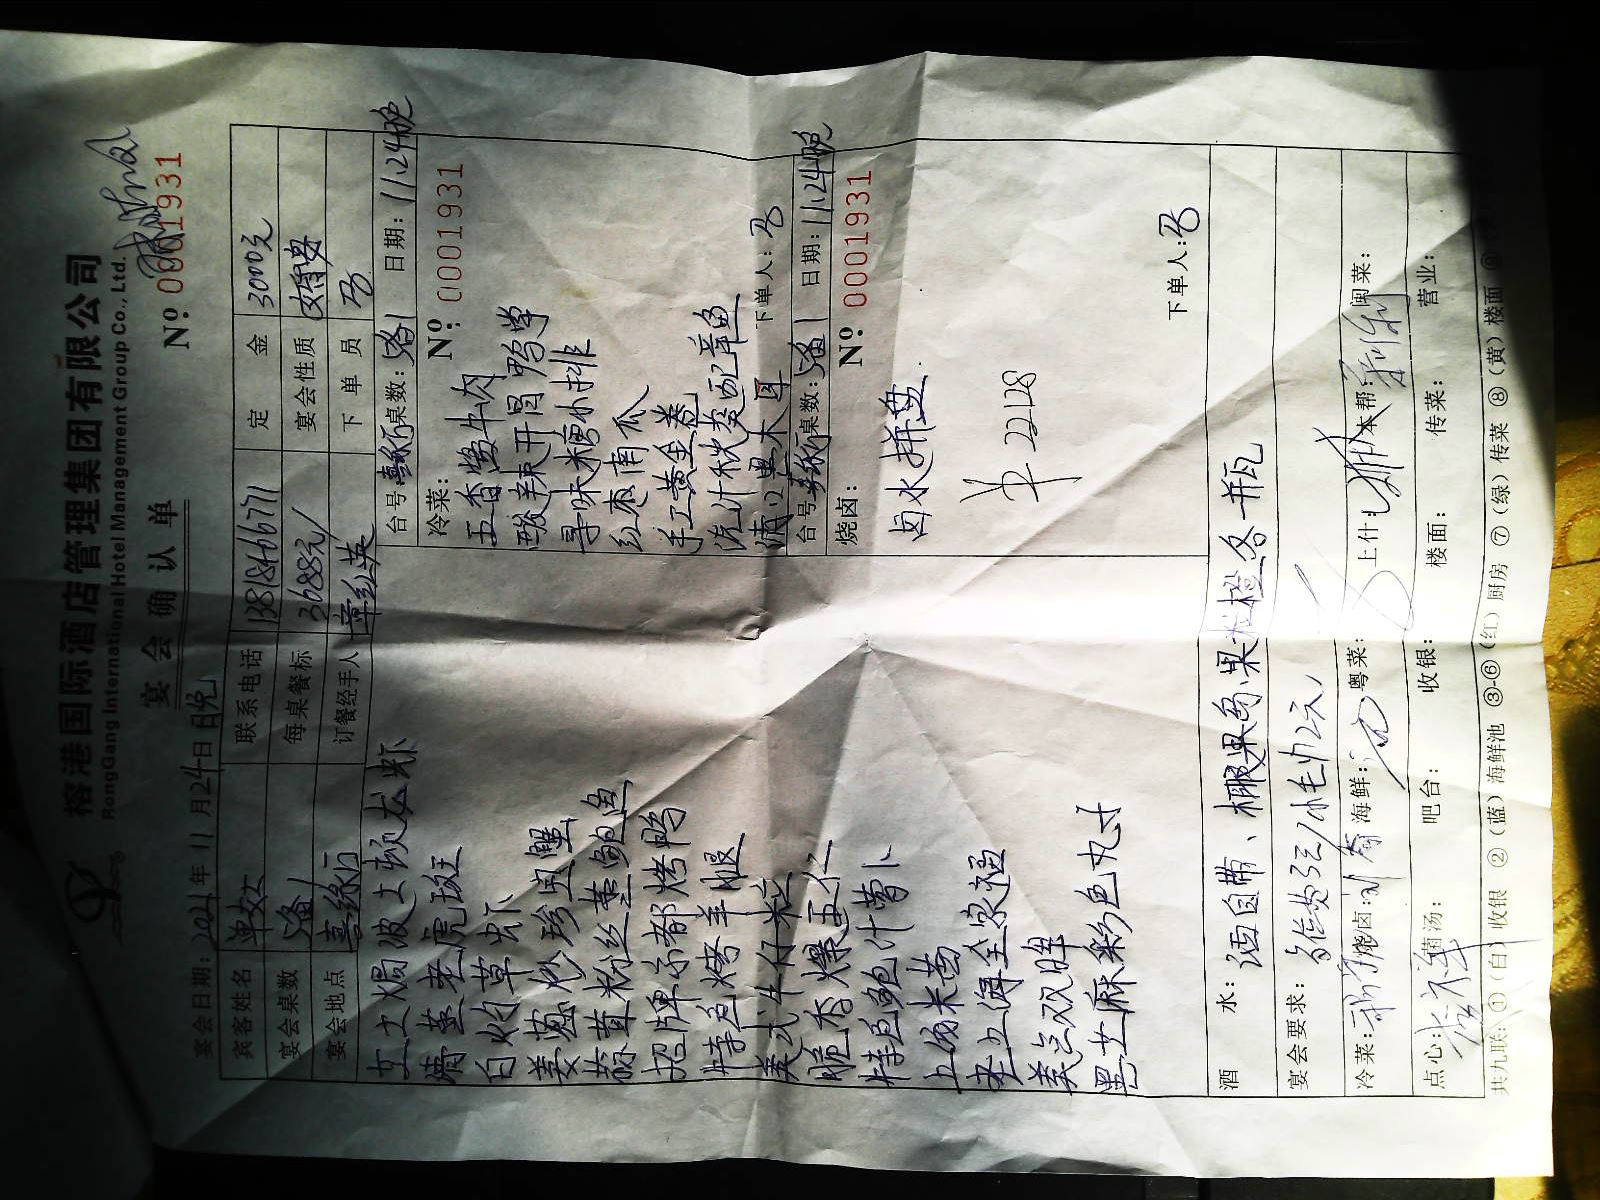 榕港国际酒店管理集团有限公司
RongGang International Hotel Management Group Co., Ltd.
宴会确认单
№: 0001931
宴会日期: 2021年11月24日晚
宾客姓名 单女 联系电话 13818466771 定金 3000元
宴会桌数 5备1 每桌餐标 3688元/ 宴会性质 婚宴
宴会地点 喜缘厅 订餐经手人 章红英 下单员
上焗波士顿龙虾
清蒸老虎斑
白灼草虾
姜葱炒珍宝蟹
蒜茸粉丝蒸鲍鱼
招牌京都烤鸭
特色烤羊腿
美式牛仔粒
脆香爆五仁
特色鲍汁萝卜
上汤米苋
老上海全家福
美点双辉
黑芝麻彩色丸子
台号 喜缘厅 桌数: 5备1 日期: 11.24晚
冷菜: №: 0001931
五香酱牛肉
酸辣开胃鸭掌
寻味糖小排
红枣南瓜
手工黄金卷
捞汁秋葵配章鱼
黑木耳
下单人:
台号 喜缘厅 桌数: 5备1 日期: 11.24晚
烧卤: №: 0001931
卤水拼盘
下单人:
酒水: 酒自带、椰果奶、果粒橙各1瓶
宴会要求: 毛巾2元
冷菜: 烧卤: 海鲜: 粤菜: 上什: 本帮: 闽菜:
点心: 菌汤: 吧台: 收银: 楼面: 传菜: 营业:
共九联: ①(白)收银 ②(蓝)海鲜池 ③-⑥(红)厨房 ⑦(绿)传菜 ⑧(黄)楼面